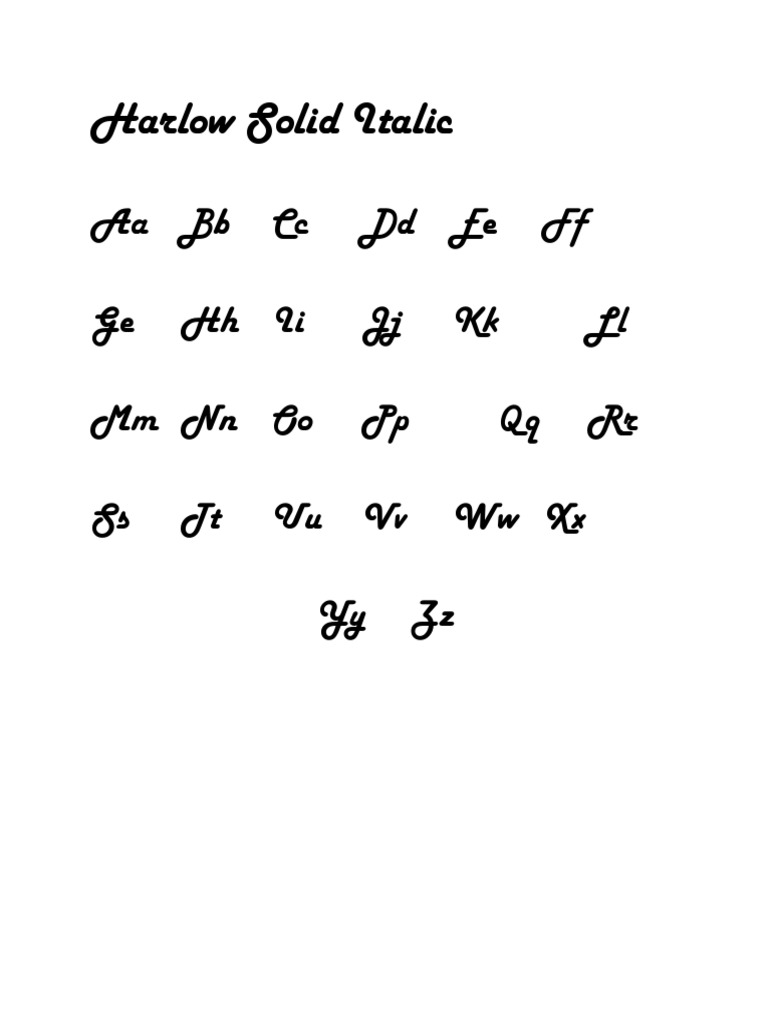 Harlow Solid Italic
Aa Bb Cc Dd Ee Ff
Ge Hh Ii Jj Kk Ll
Mm Nn Oo Pp Qq Rr
Ss Tt Uu Vv Ww Xx
Yy Zz